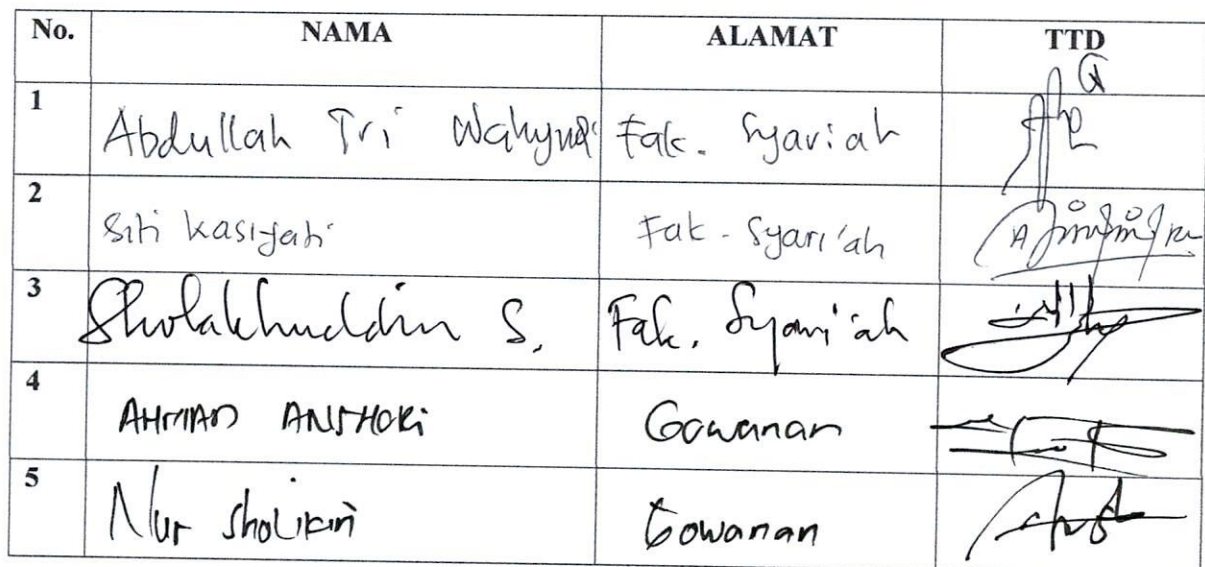 No. NAMA ALAMAT TTD
1 Abdullah Tri Wahyudi Fak. Syari'ah
2 Siti Kasiyati Fak. Syari'ah
3 Sholakhuddin S. Fak. Syari'ah
4 AHMAD ANSHORi Gowanan
5 Nur Sholikin Gowanan